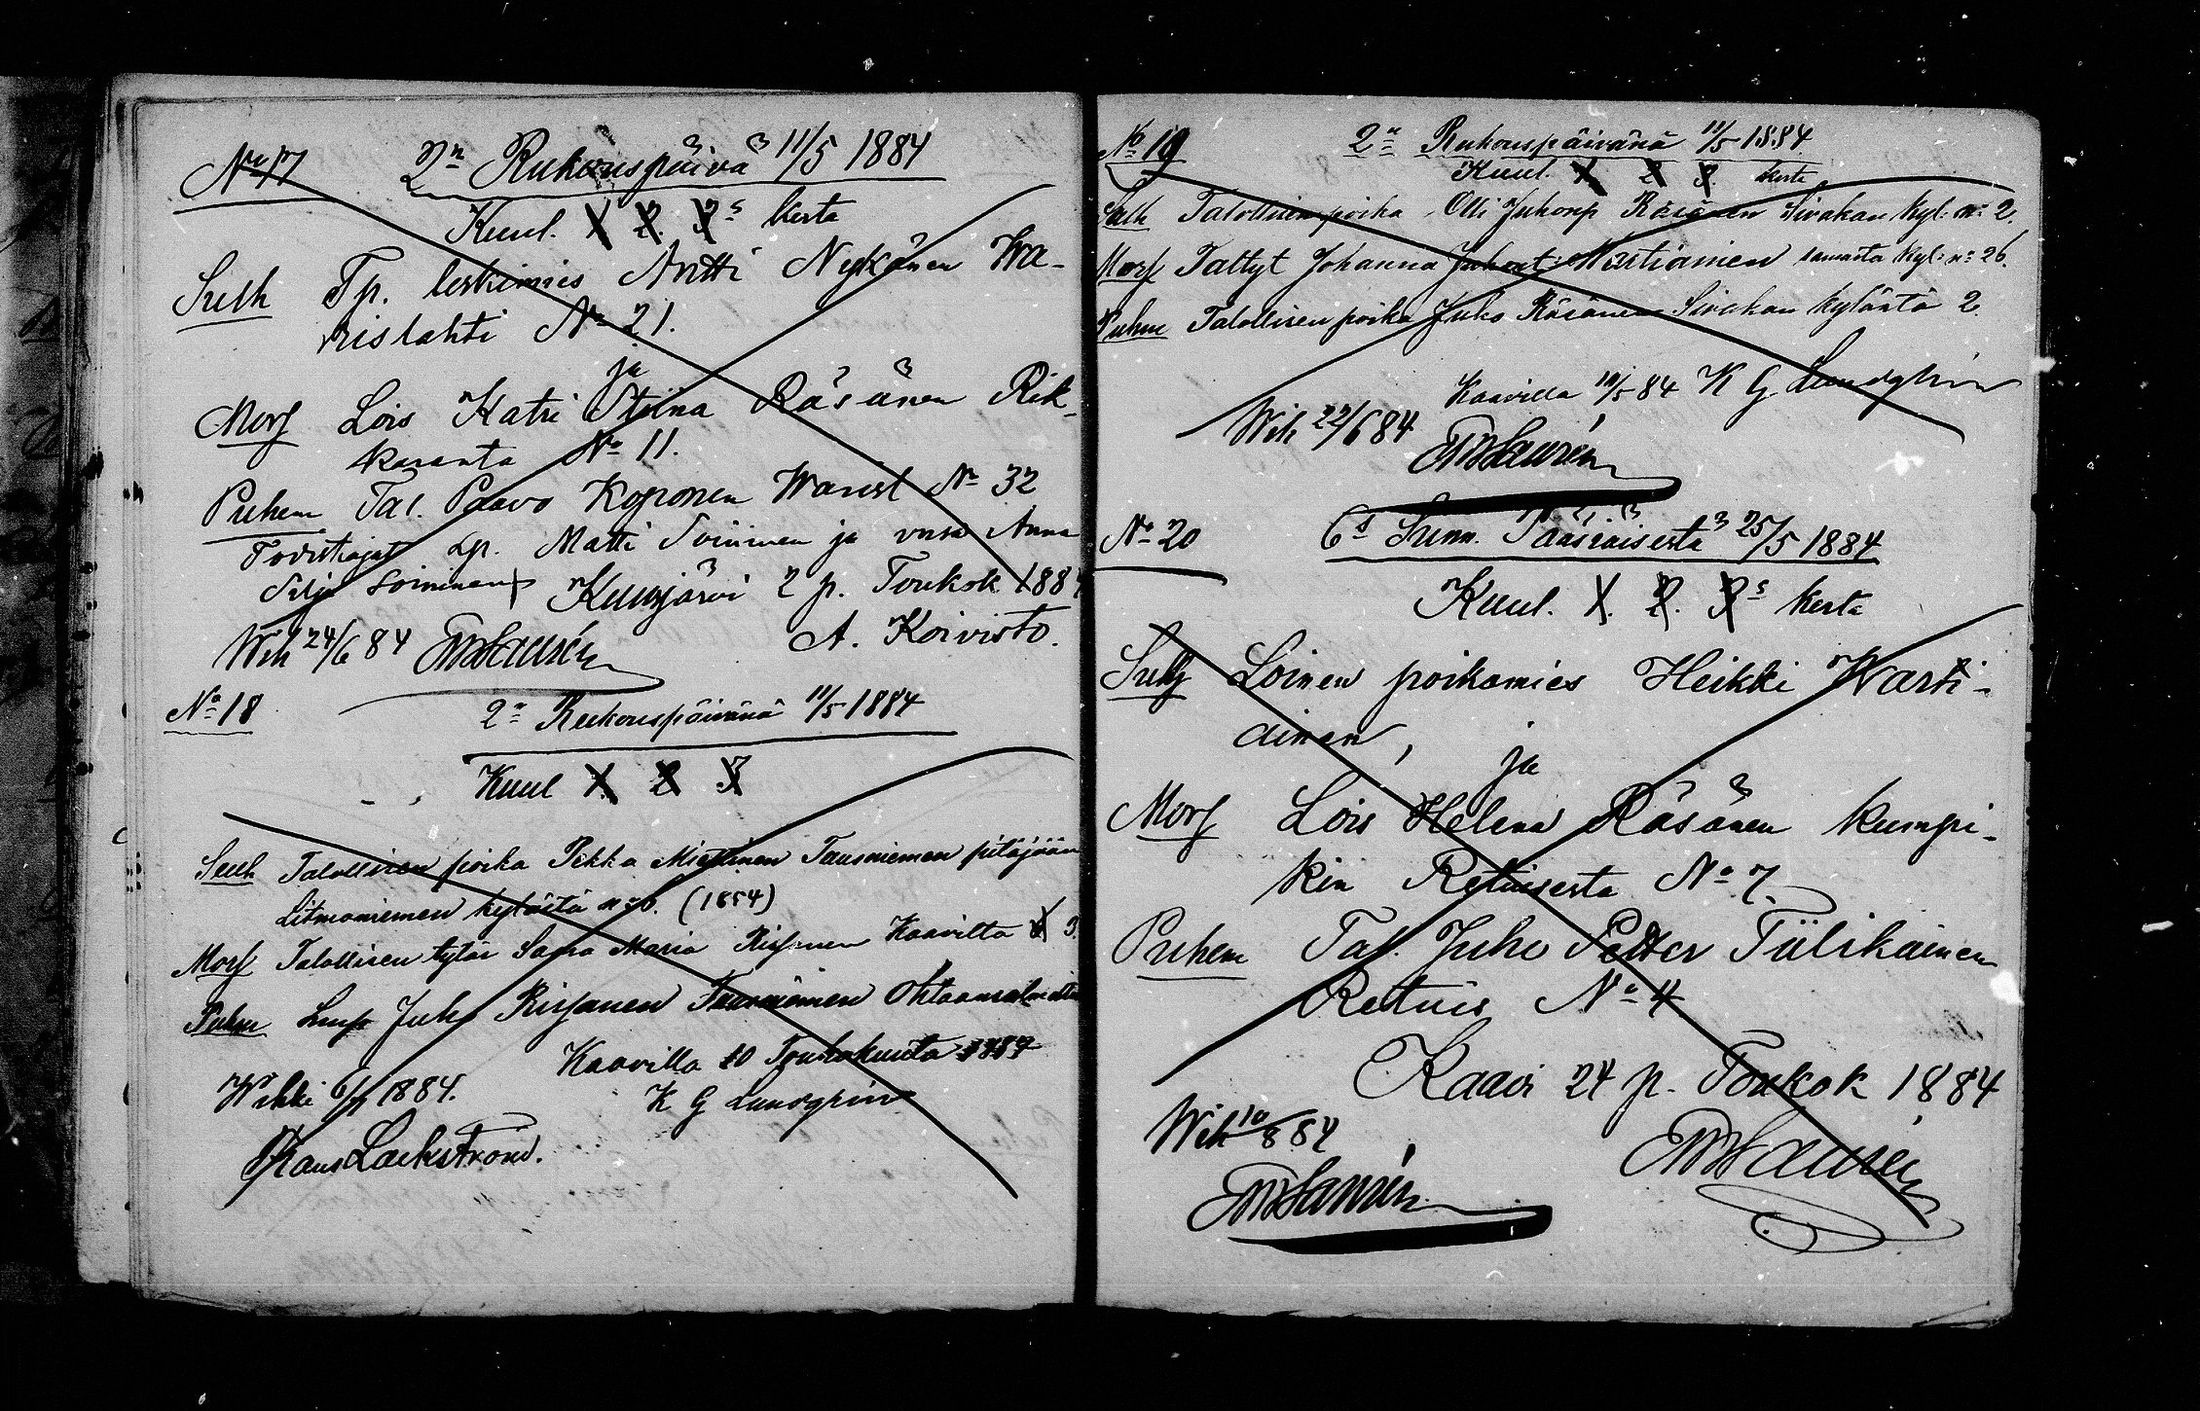 No 17 2n Rukouspäivä 11/5 1884
Kuul. 1. 2. 3s kerta
Sulh Tp. leskimies Antti Nykänen Wa-
rislahti No 21.
ja
Mors Lois Katri Stiina Räsänen Rik-
karanta No 11.
Puhem Tal. Paavo Koponen Warisl No 32
Todistajat Lp. Matti Soininen ja vmso Anna
Soininen Kuusjärvi 2 p. Toukok 1884
Wih 24/6 84 A. Koivisto.
No 18 2n Rukouspäivänä 11/5 1884
Kuul 1. 2 3
Sulh Talollisen poika Pekka Miettinen Tuusniemen pitäjään
Litmaniemen kylästä no 6. (1854)
Mors Talollisen tytär Maria Kaavilta 3.
Puhm Juho Tuusniemen
Kaavilla 10 Toukokuuta 1884
Wihki 6/7 1884. K G Lundgrén
Lackström.
No 19 2n Rukouspäivänä 11/5 1884
Kuul. 1 2 3. kerta
Sulh Talollisen poika Olli Juhonp Räsänen Sivakan kyl: no 2.
Mors Tallyt Johanna Juhont: Martiainen samasta kyl: no 26.
Puhm Talollisen poika Juho Räsänen Sivakan kylästä 2.
Kaavilla 10/5 84 K G Lundgrén
Wih 22/6 84
No 20 6s Sunn. Pääsiäisestä 25/5 1884
Kuul. 1. 2. 3s kerta
Sulh Loinen poikamies Heikki Warti-
ainen, ja
Mors Lois Helena Räsänen kumpi-
kin Retuisesta No 7
Puhem Tal. Juho Petter Tiilikainen
Retuis No 4
Kaavi 24 p. Toukok 1884
Wih 10/8 84